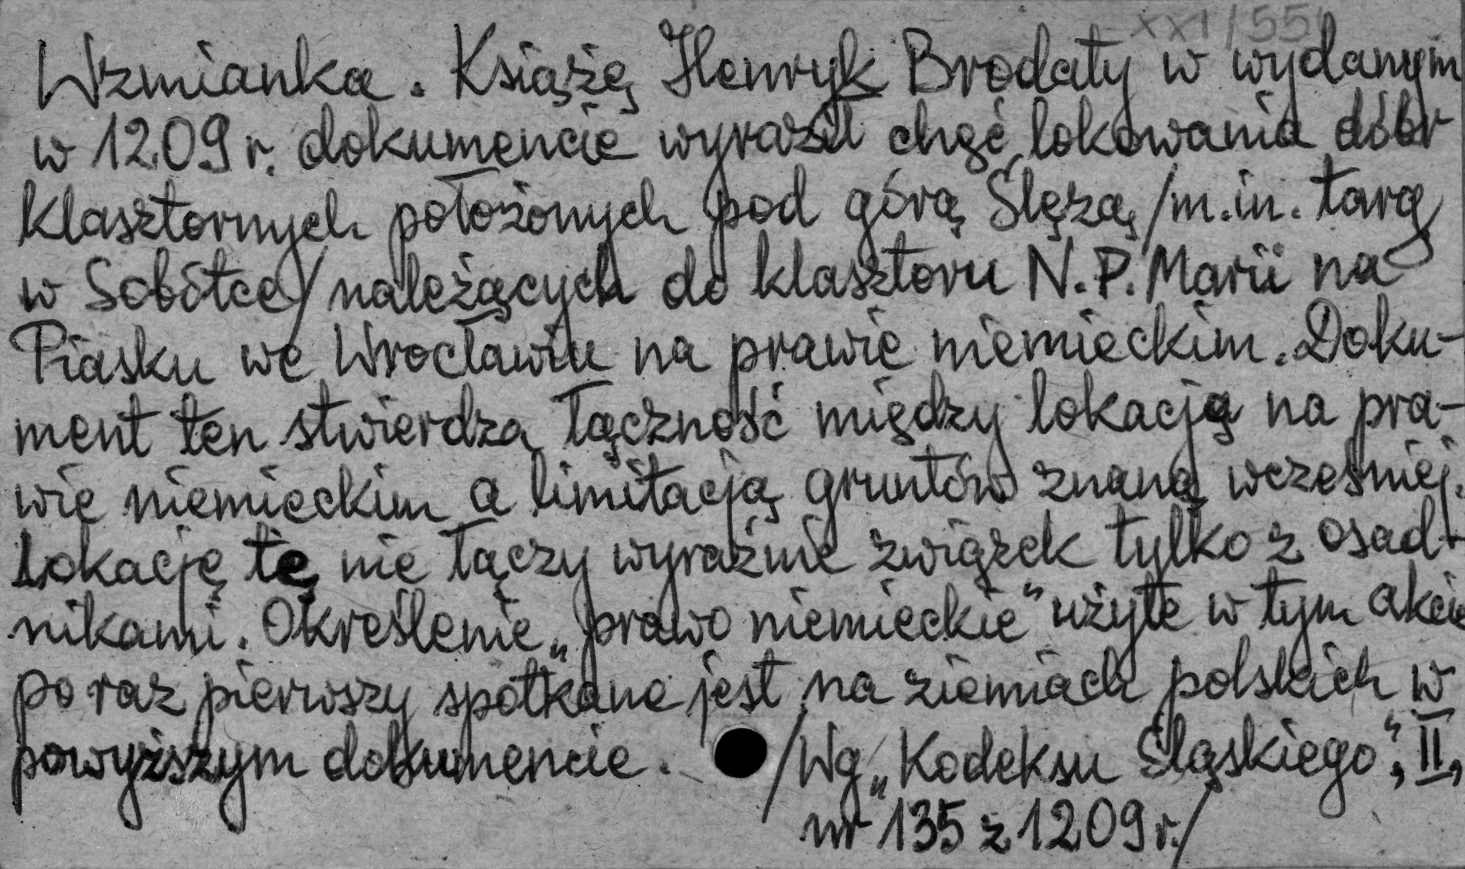 XXI/55
Wzmianka. Książę Henryk Brodaty w wydanym
w 1209 r. dokumencie wyraził chęć lokowania dóbr
klasztornych położonych pod górą Ślężą /m.in. targ
w Sobótce/ należących do klasztoru N.P. Marii na
Piasku we Wrocławiu na prawie niemieckim. Doku-
ment ten stwierdza łączność między lokacją na pra-
wie niemieckim a limitacją gruntów znaną wcześniej.
Lokację tę nie łączy wyraźnie związek tylko z osad-
nikami. Określenie „prawo niemieckie" użyte w tym akcie
po raz pierwszy spotkane jest na ziemiach polskich w
powyższym dokumencie. /Wg „Kodeksu Śląskiego", II,
nr 135 z 1209 r./